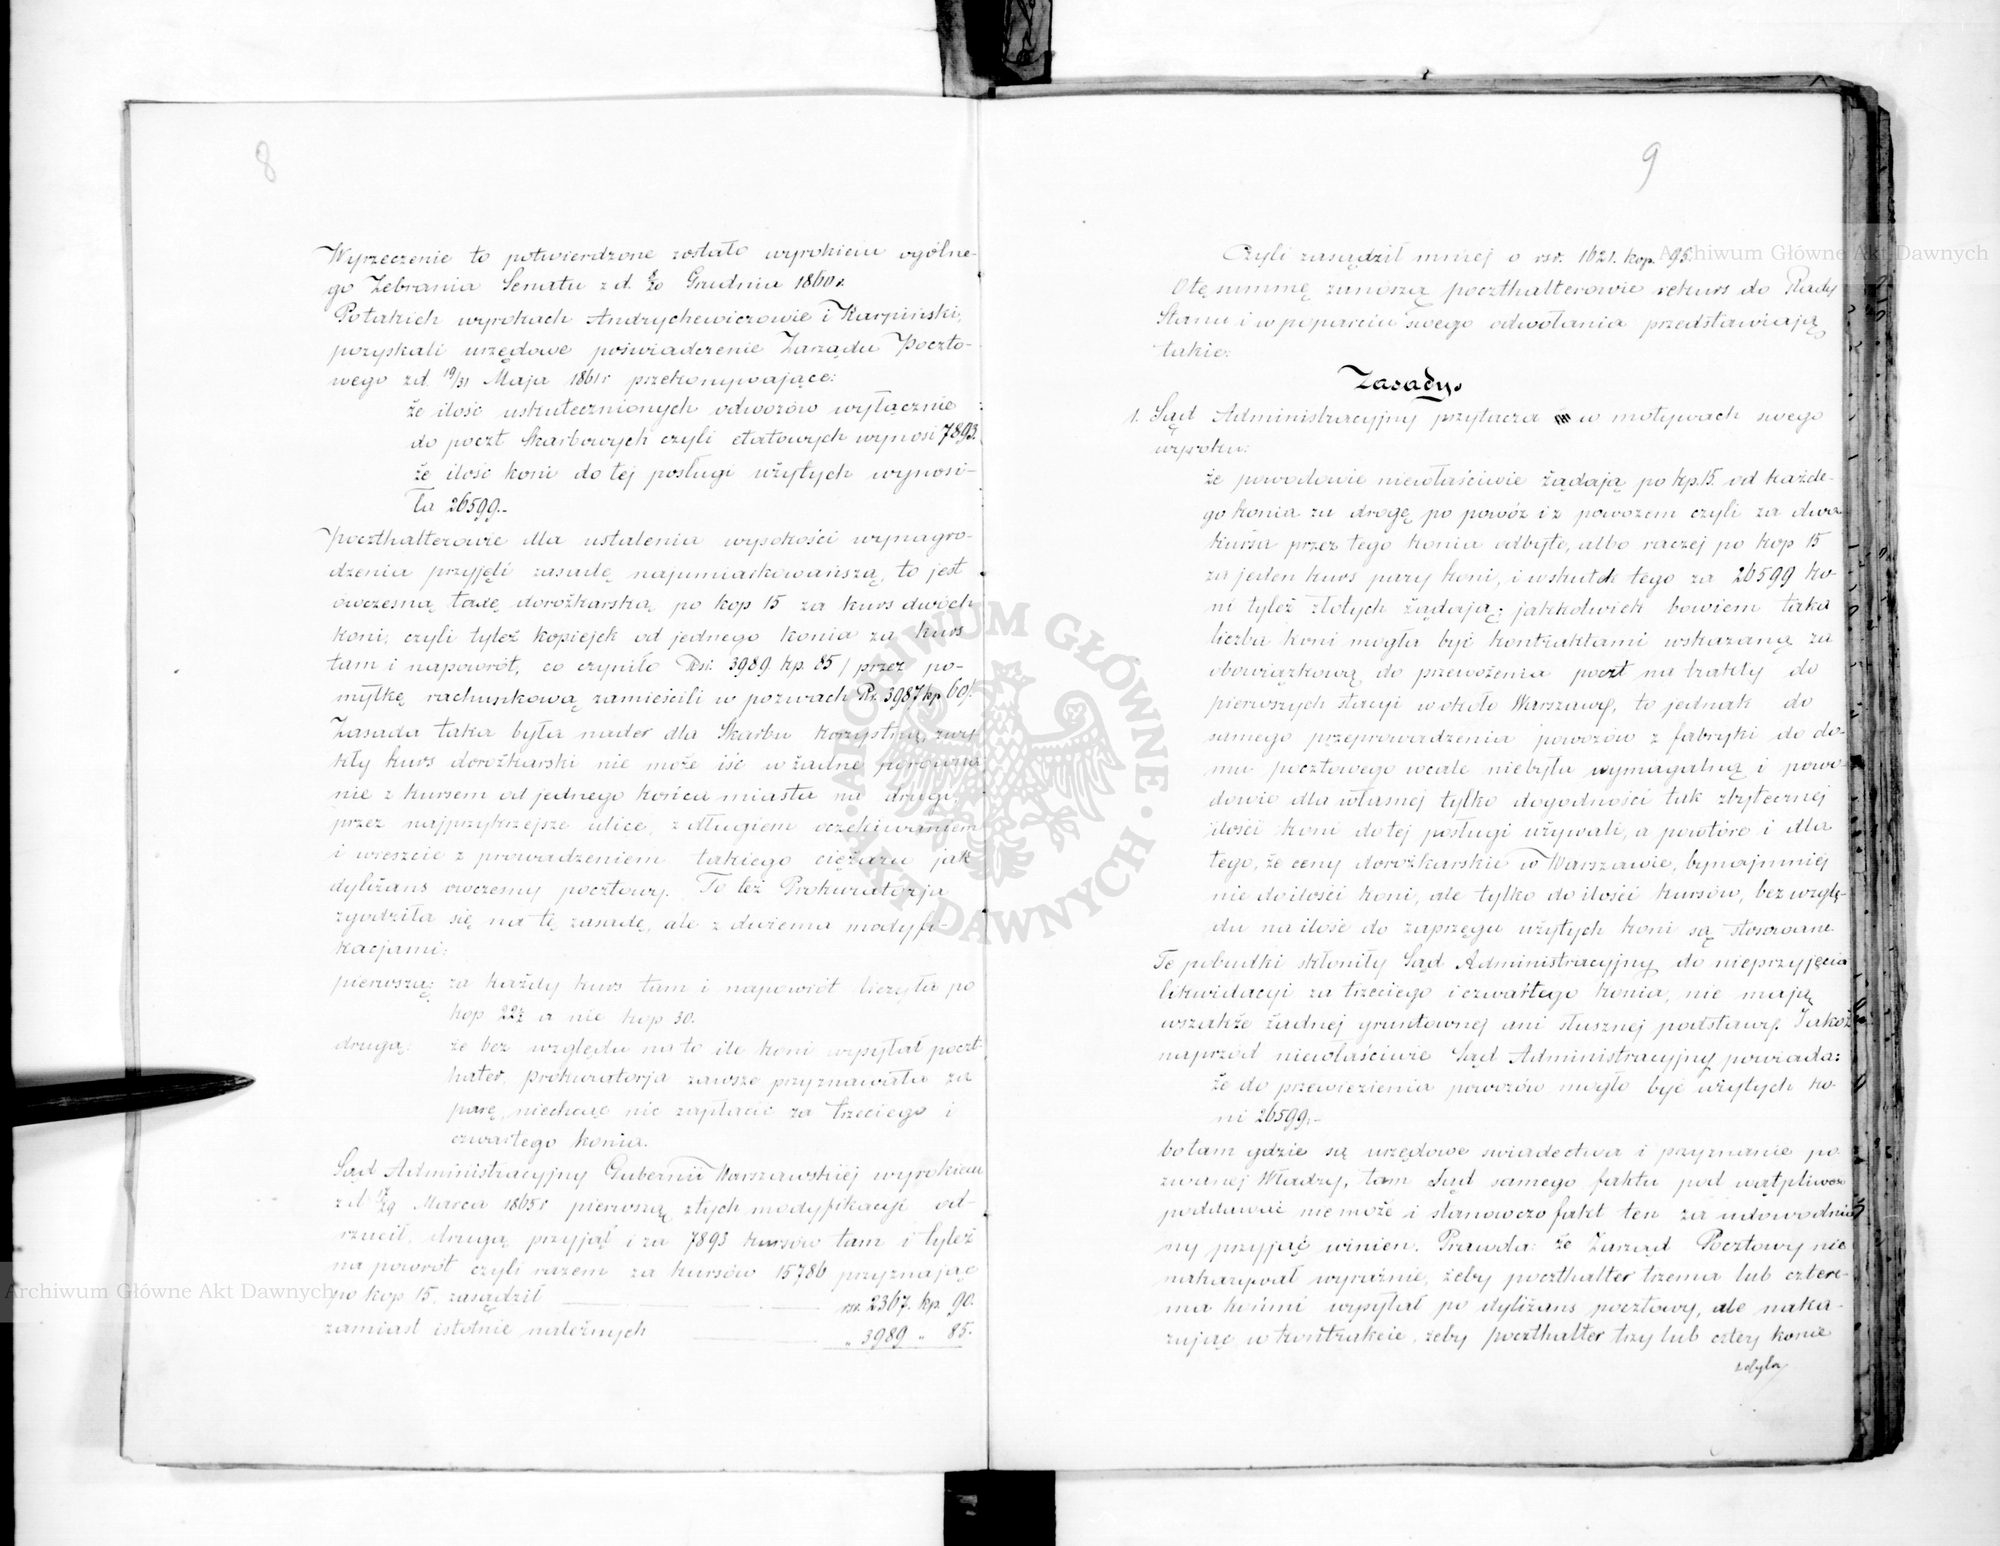 8
Wyrzeczenie to potwierdzone zostało wyrokiem ogólne-
go Zebrania Senatu z d. 8/20 Grudnia 1860 r.
Po takich wyrokach Andrychewiczowie i Karpiński,
pozyskali urzędowe poświadczenie Zarządu Poczto-
wego z d. 19/31 Maja 1861 r przekonywające:
że ilość uskutecznionych odwozów wyłącznie
do poczt Skarbowych czyli etatowych wynosi 7893.
że ilość koni do tej posługi użytych wynosi-
ła 26599.-
Poczthalterowie dla ustalenia wysokości wynagro-
dzenia przyjęli zasadę najumiarkowańszą, to jest
ówczesną taxę dorożkarską, po kop 15 za kurs dwóch
koni, czyli tyleż kopiejek od jednego konia za kurs
tam i napowrót, co czyniło Rsr. 3989 kp. 85 / przez po-
myłkę rachunkową zamieścili w pozwach Rs. 3987 kp 60/.
Zasada taka była nader dla Skarbu korzystną, zwy
kły kurs dorożkarski nie może iść w żadne porówna
nie z kursem od jednego końca miasta na drugi,
przez najprzykrzejsze ulice, z długiem oczekiwaniem
i wreszcie z prowadzeniem takiego ciężaru jak
dyliżans ówczesny pocztowy. To też Prokuratorja
zgodziła się na tę zasadę, ale z dwiema modyfi-
kacjami:
pierwszą; za każdy kurs tam i napowrót liczyła po
kop 22½ a nie kop 30.
drugą: że bez względu na to ile koni wysyłał poczt
halter, Prokuratorja zawsze przyznawała za
parę, niechcąc nic zapłacić za trzeciego i
czwartego konia.
Sąd Administracyjny Gubernii Warszawskiej wyrokiem
z d 17/29 Marca 1865 r pierwszą z tych modyfikacji od-
rzucił, drugą przyjął i za 7893 kursów tam i tyleż
na powrót czyli razem za kursów 15786 przyznając
po kop 15. zasądził rsr. 2367. kp. 90.
zamiast istotnie należnych „ 3989 „ 85.
9
Czyli zasądził mniej o rsr. 1621. kop. 95.
O tę summę zanoszą poczthalterowie rekurs do Rady
Stanu i w poparciu swego odwołania przedstawiają
takie:
Zasady.
1. Sąd Administracyjny przytacza w motywach swego
wyroku:
że powodowie niewłaściwie żądają po kp. 15. od każde-
go konia za drogę po powóz i z powozem czyli za dwa
kursa przez tego konia odbyte, albo raczej po kop 15
za jeden kurs pary koni, i wskutek tego za 26599 ko-
ni tyleż złotych żądają; jakkolwiek bowiem taka
liczba koni mogła być kontraktami wskazaną za
obowiązkową do przewożenia poczt na trakty do
pierwszych stacyi w około Warszawy, to jednak do
samego przeprowadzenia powozów z fabryki do do-
mu pocztowego wcale niebyła wymagalną i powo
dowie dla własnej tylko dogodności tak zbytecznej
ilości koni do tej posługi używali, a powtóre i dla
tego, że ceny dorożkarskie w Warszawie, bynajmniej
nie do ilości koni, ale tylko do ilości kursów, bez wzglę-
du na ilość do zaprzęgu użytych koni są stosowane.
Te pobudki skłoniły Sąd Administracyjny do nieprzyjęcia
likwidacyi za trzeciego i czwartego konia, nie mają
wszakże żadnej gruntownej ani słusznej podstawy. Jakoż
naprzód niewłaściwie Sąd Administracyjny powiada:
że do przewiezienia powozów mogło być użytych ko-
ni 26599.-
bo tam gdzie są urzędowe świadectwa i przyznanie po
zwanej Władzy, tam Sąd samego faktu pod wątpliwość
poddawać nie może i stanowczo fakt ten za udowodnio
ny przyjąć winien. Prawda: że Zarząd Pocztowy nie
nakazywał wyraźnie, żeby poczthalter trzema lub cztere-
ma końmi wysyłał po dyliżans pocztowy, ale naka-
zując w kontrakcie, żeby poczthalter trzy lub cztery konie
Archiwum Główne Akt Dawnych
ARCHIWUM GŁÓWNE · AKT DAWNYCH ·
Archiwum Główne Akt Dawnych